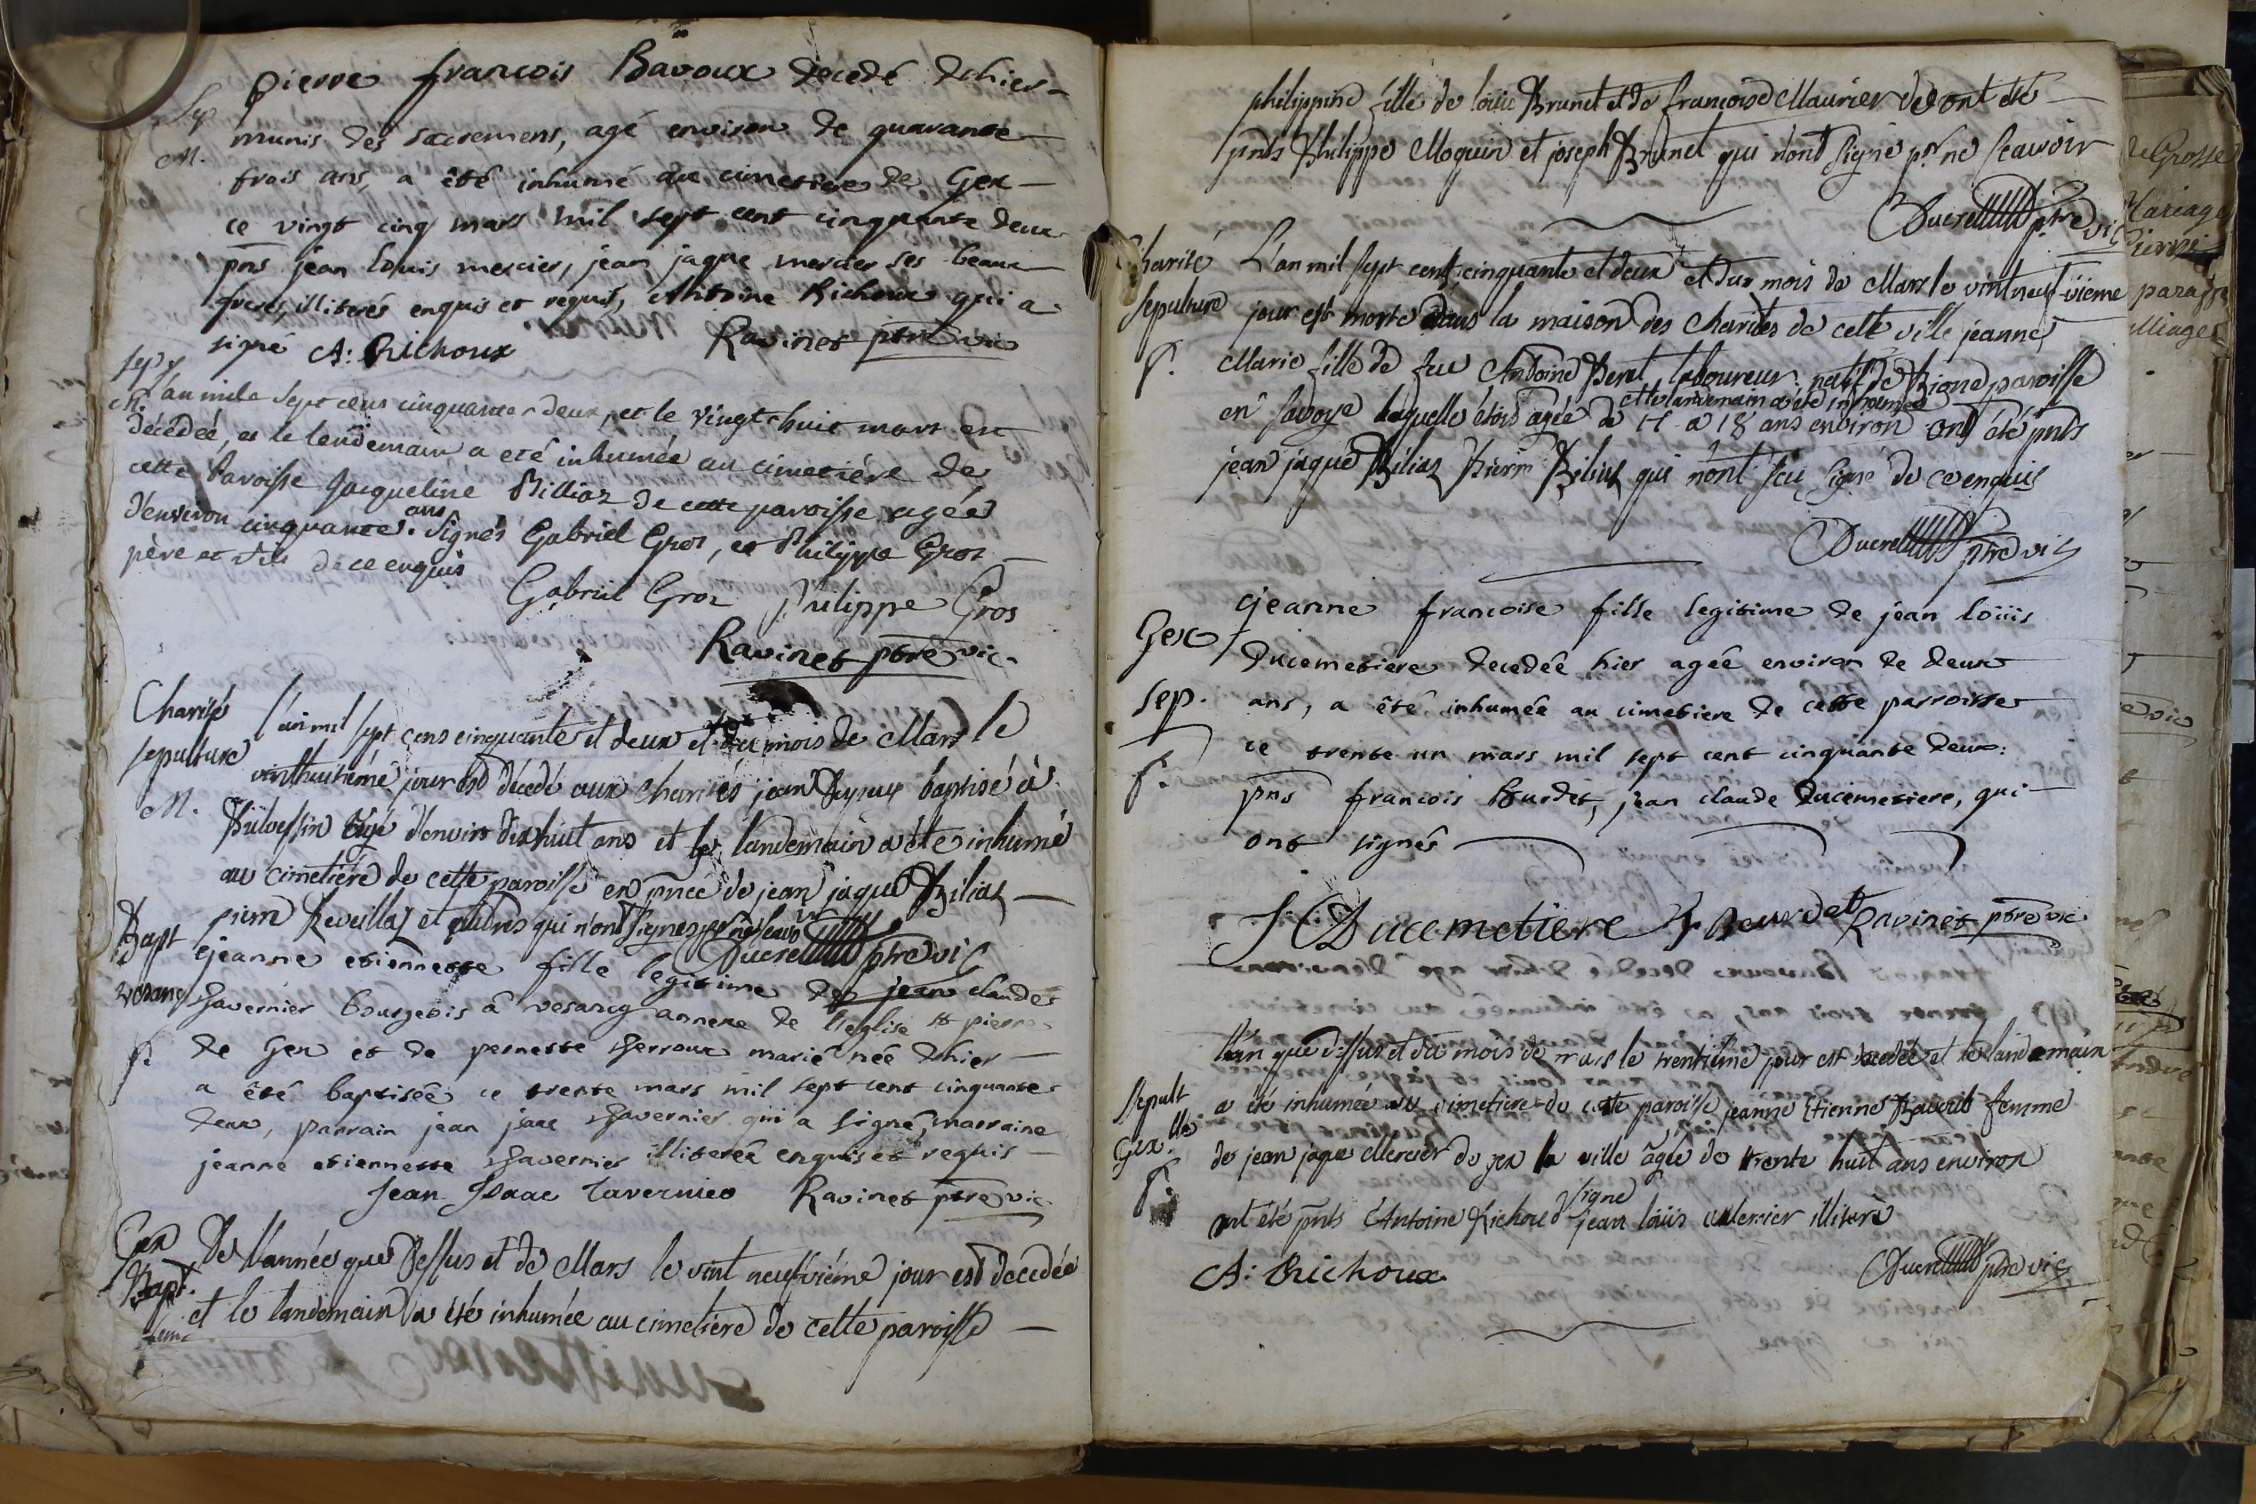 pierre francois Bavoux decedé dehier
Sep
munis des sacremens, agé environ de quarante
M.
trois ans, a êté inhumé au cimetiere de Gex
ce vingt cinq mars mil sept cent cinquante deux
pns jean loüis mercier, jean jaque mercier ses beaux
freres, illiterés enquis et requis, Antoine Richoux qui a
signé A: Richoux Ravinet ptre vic
sep.
M.
l'an mile sept cens cinquante deux, et le vingt huit mars est
décédeé, et le lendemain a eté inhumée au cimetiére de
cette Paroisse Jacqueline Billiaz de cette paroisse agée
d'environ cinquante ans. Signés Gabriel Groz, et Philippe Groz
père et fils de ce enquis
Gabriel Groz Philippe Gros
Ravinet ptre vic.
Charité
sepulture
M.
l'an mil sept cens cinquante et deux et du mois de Mars le
vinthuitiéme jour est décedé aux charités jean baptisé à
agé d'environ dixhuit ans et le landemain a été inhumé
au cimetiére de cette paroisse en pnce de jean jaque Biliaz
pierre Reveillaz et autres qui n'ont signés pr ne sçavoir
Ducret ptre vic
Bapt
vesancy
f.
jeanne etiennette fille legitime de jean claude
Tavernier bourgeois à vesancy annexe de l'eglise st pierre
de Gex et de pernette Perroux marié née dehier
a êté baptisée ce trente mars mil sept cent cinquante
deux, parrain jean jsaac Tavernier qui a signé, marraine
jeanne etiennette Tavernier illiterée enquis et requis
Jean Isaac Tavernier Ravinet ptre vic
Gex
Bapt.
De l'année que dessus et de Mars le vint neufviéme jour est decedée
et le landemain a été inhumée au cimetiére de cette paroisse
philippine fille de loüis Brunet et de françoise Maurier ont été
pnts Philippe Moquin et joseph Brunet qui n'ont signé pr ne sçavoir
Ducret ptre vic
Charité
sepulture
f.
L'an mil sept cent cinquante et deux et du mois de Mars le vintneufviéme
jour est morte dans la maison des charités de cette ville jeanne
Marie fille de feu Antoine laboureur natif de paroisse
et le landemain a été inhumée
en savoye laquelle étois agée de 17 a 18 ans environ ont été pnts
jean jaque Biliaz Pierre Biliaz qui n'ont sçu signé de ce enquis
Ducret ptre vic
Gex
sep.
f.
jeanne francoise fille legitime de jean loüis
Ducemetiere decedée hier ageê environ de deux
ans, a êté inhumée au cimetiere de cette parroisse
ce trente un mars mil sept cent cinquante deux:
pns francois Bourdet, jean claude Ducemetiere, qui
ont signés
J C Ducemetiere f Bourdet Ravinet ptre vic
Sepult
Gex. lle
f.
l'an que dessus et du mois de mars le trentiéme jour est decedée et le landemain
a été inhumée au cimetiere de cette paroisse jeanne etienne femme
de jean jaque Mercier de gex la ville âgée de trente huit ans environ
signé
ont été pnts Antoine Richoux jean loüis Mercier illiteré
A: Richoux
Ducret ptre vic